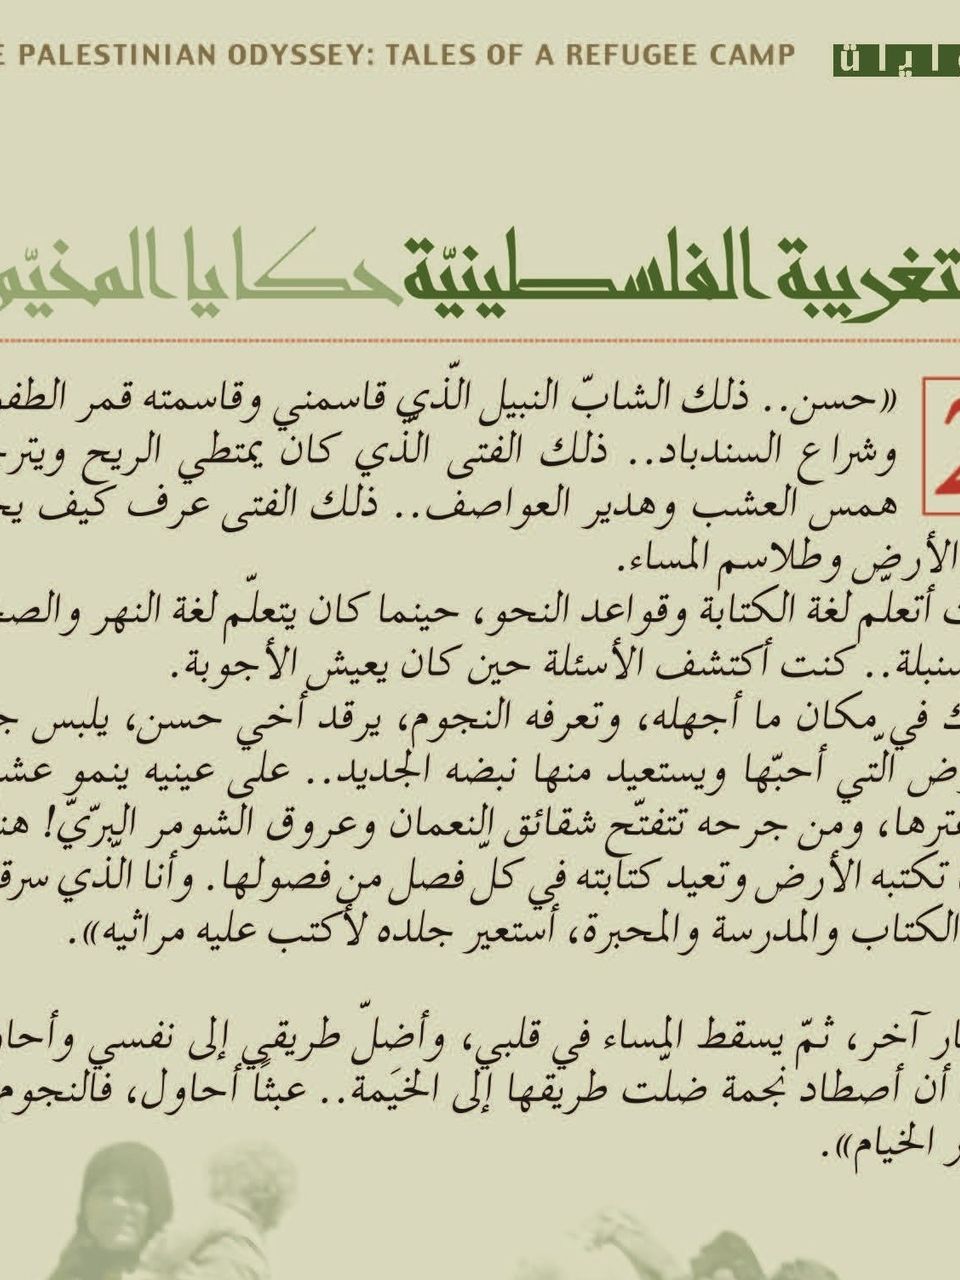 PALESTINIAN ODYSSEY: TALES OF A REFUGEE CAMP
الفلسطينيّة حكايا
«حسن.. ذلك الشابّ النبيل الّذي قاسمني وقاسمته قمر
وشراع السندباد.. ذلك الفتى الّذي كان يمتطي الريح
همس العشب وهدير العواصف.. ذلك الفتى عرف كيف
الأرض وطلاسم المساء.
أتعلّم لغة الكتابة وقواعد النحو، حينما كان يتعلّم لغة النهر
كنت أكتشف الأسئلة حين كان يعيش الأجوبة.
في مكان ما أجهله، وتعرفه النجوم، يرقد أخي حسن، يلبس
الّتي أحبّها ويستعيد منها نبضه الجديد.. على عينيه ينمو
ومن جرحه تتفتّح شقائق النعمان وعروق الشومر البرّيّ!
تكتبه الأرض وتعيد كتابته في كلّ فصل من فصولها. وأنا الّذي
الكتاب والمدرسة والمحبرة، أستعير جلده لأكتب عليه مراثيه».
آخر، ثمّ يسقط المساء في قلبي، وأضلّ طريقي إلى نفسي
أن أصطاد نجمة ضلّت طريقها إلى الخيَمة.. عبثًا أحاول، فالنجوم
الخيام».